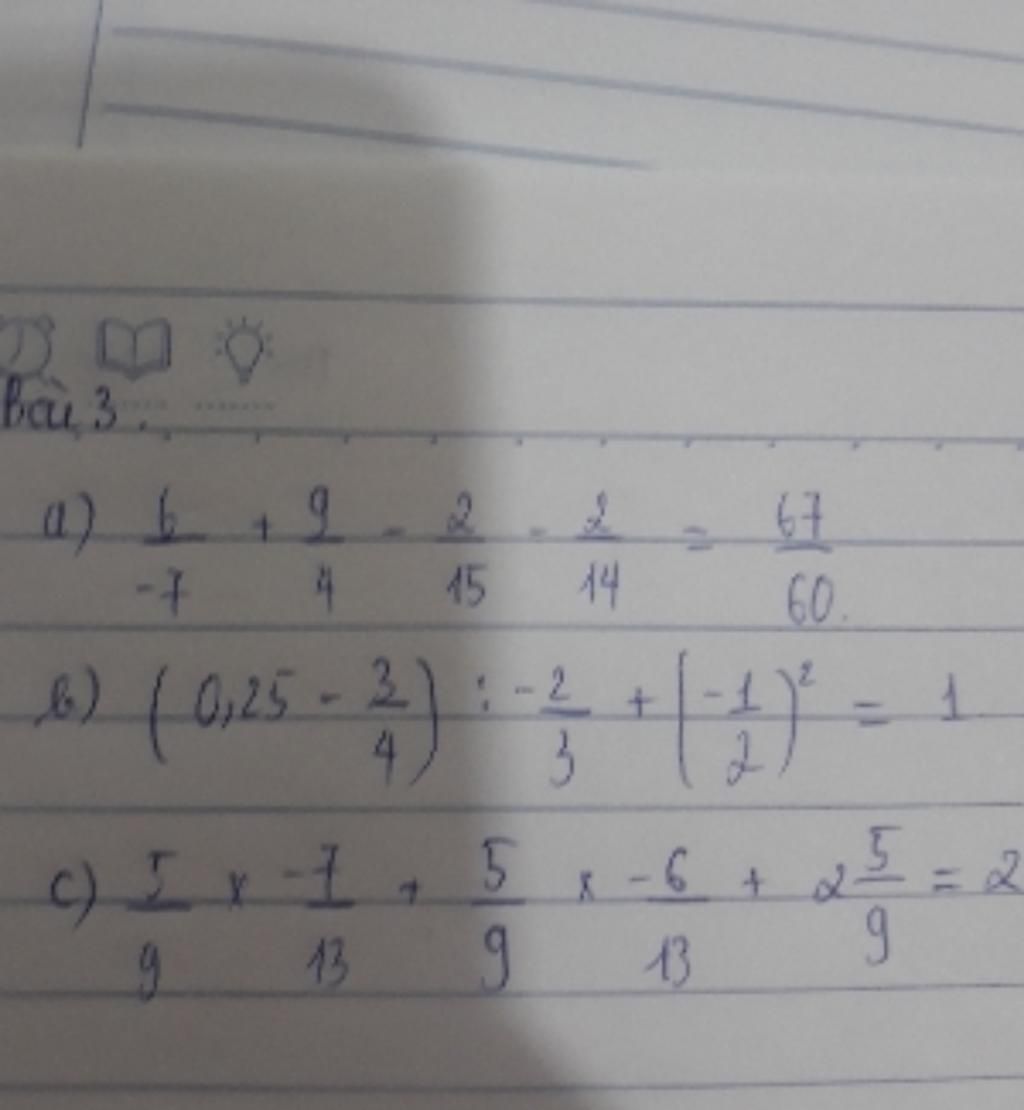 bài 3.
a) 6/-7 + 9/4 - 2/15 - 2/14 = 67/60.
b) (0,25 - 3/4) : -2/3 + (-1/2)² = 1
c) 5/9 x -7/13 + 5/9 x -6/13 + 2 5/9 = 2